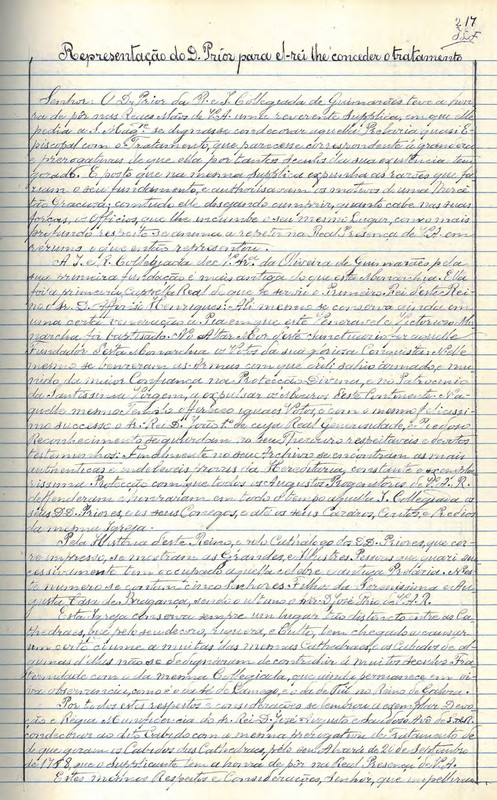 217
Representação do D. Prior para el-rei lhe conceder o tratamento
Senhor: O D. Prior da R. e I. Collegiada de Guimarães teve a hon-
ra de pôr nas Reaes Mãos de V. A. uma reverente Supplica, em que elle
pedia a S. Mag.e se dignasse condecorar aquella Prelazia quasi E-
piscopal com o Tratamento, que parecesse correspondente á grandeza
e prerogativas de que ella por tantos seculos da sua existencia tem
gozado. E posto que na mesma Supplica expunha as razões que fa-
ziam o seu fundamento, e authorisavam os motivos de uma Mercê
tão Graciosa; comtudo elle desejando cumprir, quanto cabe nas suas
forças, os Officios, que lhe incumbe o seu mesmo Lugar, com o mais
profundo respeito se anima a repetir na Real Presença de V. A.
o que então representou.
A I. e R. Collegiada de N. Snr.a da Oliveira de Guimarães pela
sua primeira fundação é mais antiga do que esta Monarchia. Ella
foi a primeira Capella Real de que se serviu o Primeiro Rei d'este Rei-
no o Sr. D. Affonso Henriques: Ali mesmo se conserva ainda em
uma certa veneração a Pia em que este Veneravel e Victorioso Mo-
narcha foi baptisado: No Altar Mór d'este Sanctuario fez aquelle
Fundador d'esta Monarchia os Votos da sua gloriosa Conquista: N'elle
mesmo se benzeram as Armas com que d'ali sahio armado, e mu-
nido da maior Confiança na Protecção Divina, e no Patrocinio
da Santissima Virgem, a expulsar os Mouros d'este Continente. N'a-
quelle mesmo Templo offereceu iguaes Votos, e com o mesmo felicissi-
mo successo o Sr. Rei D. João 1.º de cuja Real Generosidade, e Piedoso
Reconhecimento se guardam no seu Thesouro respeitaveis e devotos
testemunhos: Finalmente no seu Archivo se encontram as mais
authenticas e indeleveis provas da Hereditaria, constante e exempla-
rissima Protecção com que todos os Augustos Progenitores de V. A. R.
defenderam e honraram em todo o tempo aquella I. Collegiada os
seus DD. Priores, e os seus Conegos, e até os seus Cazeiros, Coutos, e Redizi
da mesma Igreja.
Pela Historia d'este Reino, e pelo Cathalogo dos DD. Priores, que cor-
re impresso, se mostram as Grandes, e Illustres Pessoas que quasi suc-
cessivamente tem occupado aquella celebre e antiga Prelazia. N'es-
te numero se contam cinco Senhores Filhos da Serenissima e Au-
gusta Casa de Bragança, sendo o ultimo o Snr. D. José Tio de V. A. R.
Esta Igreja conserva sempre um lugar tão distincto entre as Ca-
thedraes, que pelo seu decoro, riqueza, e Culto, tem chegado a causar
um certo ciume a muitas das mesmas Cathedraes: os Cabidos de al-
gumas d'ellas não se dedignaram de contrahir á muitos seculos Fra-
ternidade com o da mesma Collegiada, que ainda permanece em vi-
va observancia, como é o da Sé de Lamego, e o da de Tui no Reino de Galiza.
Por todos estes respeitos e considerações se lembrou a exemplar Devo-
ção e Regia Munificencia do Sr. Rei D. José Augusto e Saudoso Avô de V. A. R.
condecorar ao dito Cabido com a mesma prerogativa de Tratamento de
de que gozam os Cabidos das Cathedraes, pelo seu Alvará de 20 de Septembro
de 1768, que o Supplicante tem a honra de pôr na Real Presença de V. A.
Estes mesmos Respeitos e Considerações, Senhor, que impelliram